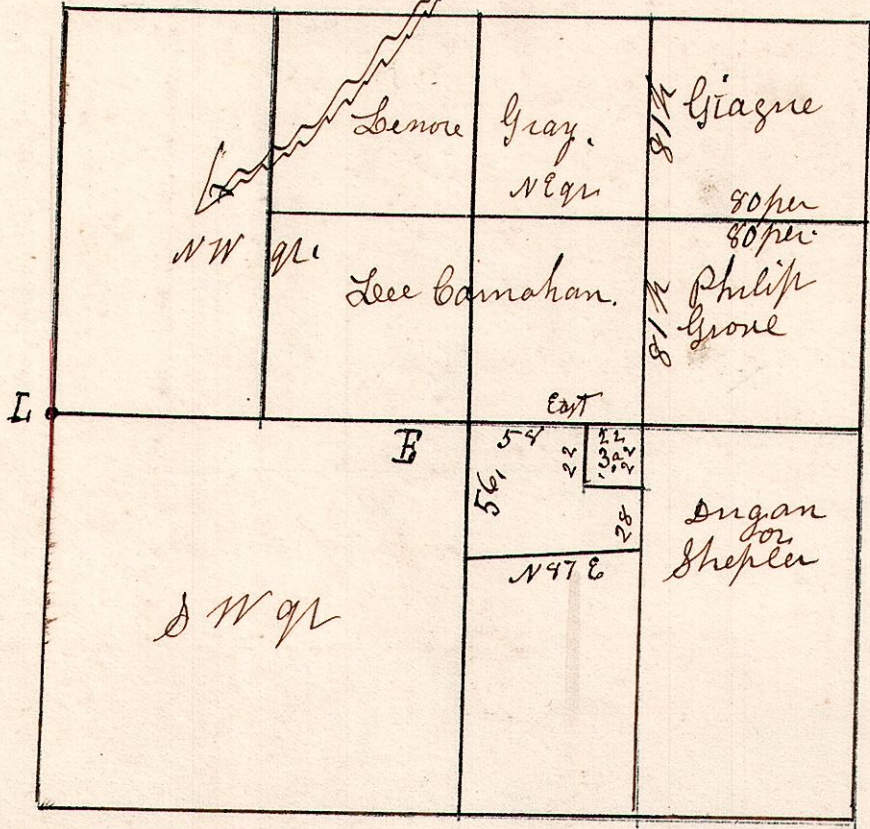 Lenore Gray.
N E qr.
Giagne
80 per
80 per.
N W qr.
Lee Carnahan.
Philip
Grove
L
East
E
58
22
22
3a
22
56
28
N 87 E
Dugan
or
Shepler
S W qr